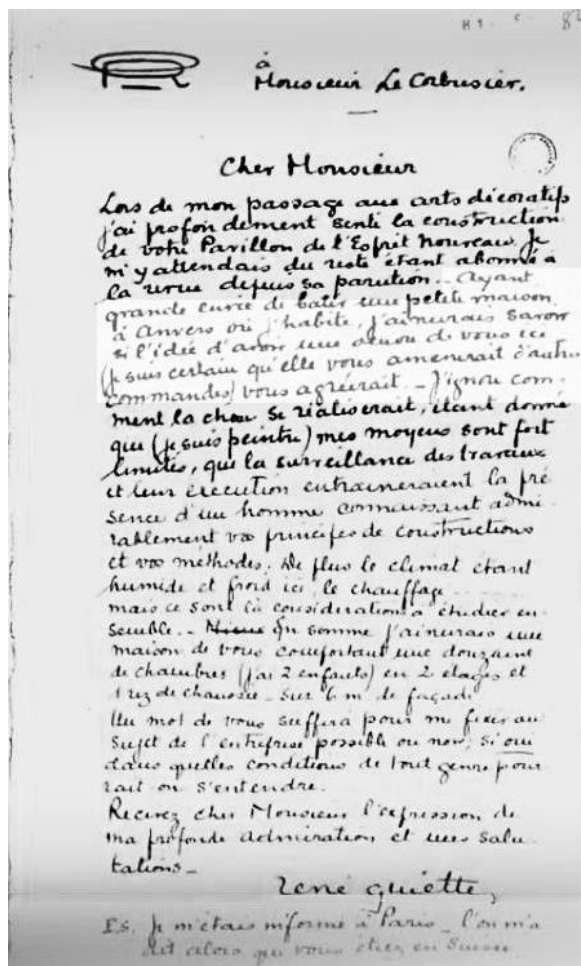 à
Monsieur Le Corbusier.
Cher Monsieur
Lors de mon passage aux arts décoratifs
j'ai profondement senti la construction
de votre Pavillon de l'Esprit Nouveau. Je
m'y attendais du reste étant abonné à
la revue depuis sa parution.. Ayant
grande envie de batir une petite maison
à Anvers où j'habite, j'aimerais savoir
si l'idée d'avoir une œuvre de vous ici
(je suis certain qu'elle vous amenerait d'autres
commandes) vous agréérait. _ J'ignore com-
ment la chose se réaliserait, étant donné
que (je suis peintre) mes moyens sont fort
limités, que la surveillance des travaux
et leur execution entraineraient la pré
sence d'un homme connaissant admi-
rablement vos principes de constructions
et vos méthodes. De plus le climat étant
humide et froid ici, le chauffage
mais ce sont là considerations à étudier en-
semble. _ En somme j'aimerais une
maison de vous comportant une douzaine
de chambres (j'ai 2 enfants) en 2 étages et
1 rez de chaussée _ sur 6 m. de façade
Un mot de vous suffira pour me fixer au
sujet de l'entreprise possible ou non, si oui
dans quelles conditions de tout genre pour-
rait on s'entendre.
Recevez cher Monsieur l'expression de
ma profonde admiration et mes salu-
tations _
rené guiette
P.S. Je m'étais informé à Paris _ l'on m'a
dit alors que vous étiez en Suisse